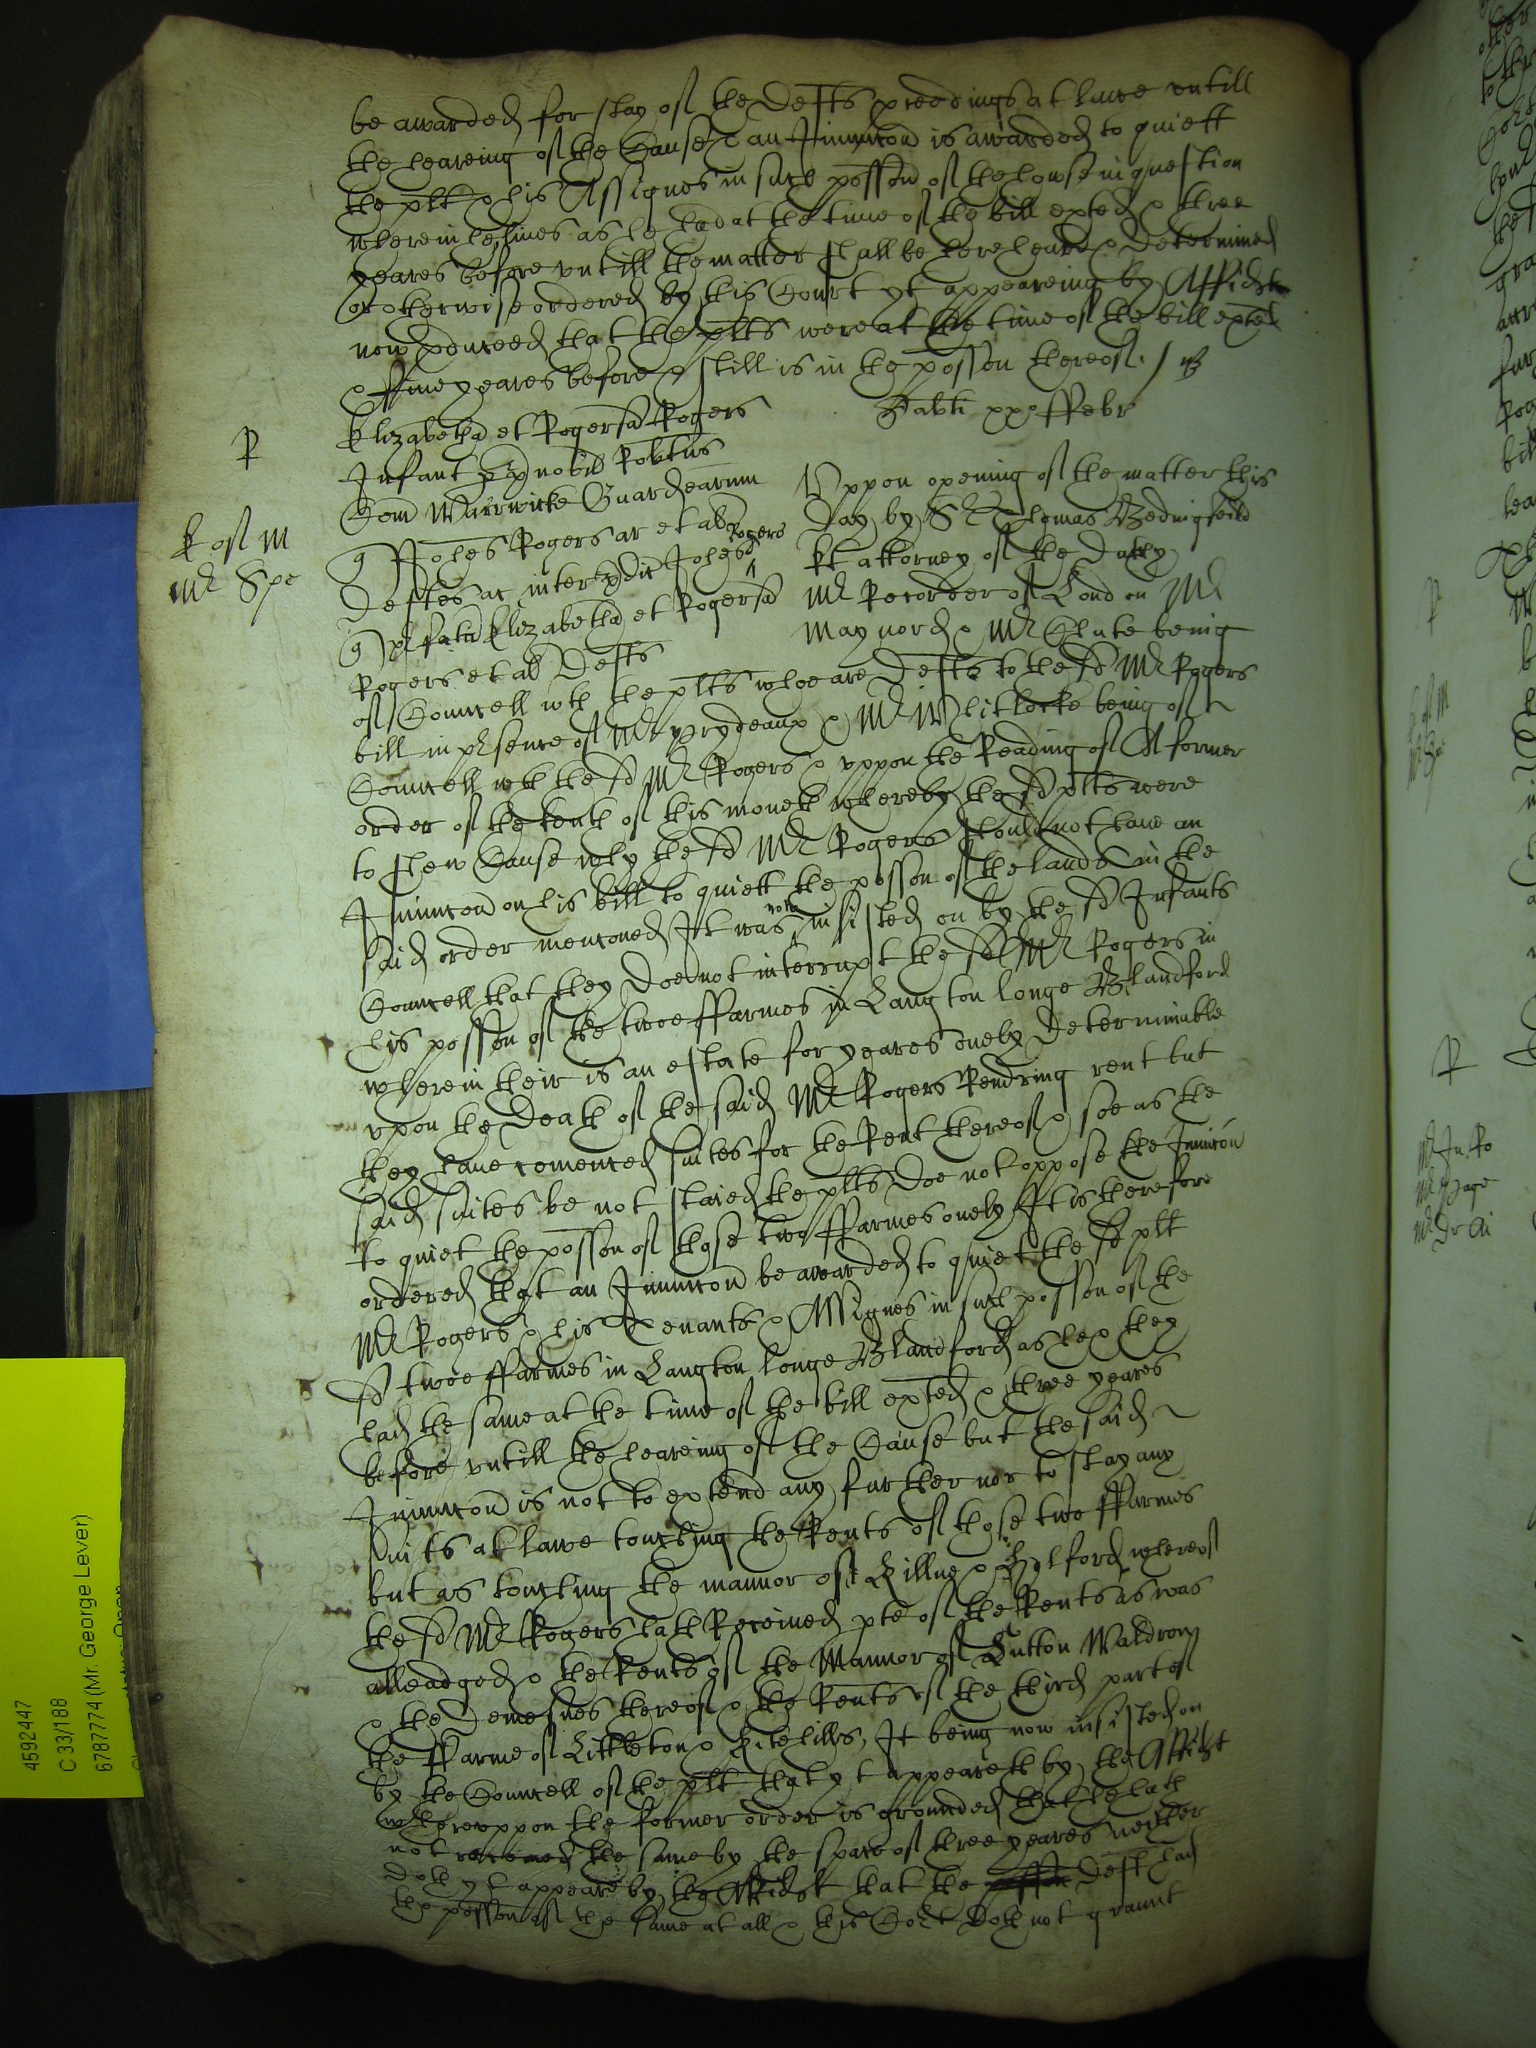 be awarded for stay of the Defts proceedings at lawe untill
the heareing of the Cause an Iniunccon is awarded to quiett
the plt & his Assignes in such posson of the howse in question
wherein he lives as he had at the time of the bill exhted & three
yeares before untill the matter shall be here heard & determined
or otherwise ordered by this Court yt appeareing by Affidt
now produced that the plts were at the time of the bill exhted
& ffive yeares before & still is in the posson thereof /
Sabti xxo ffebr
P
Elizabetha et Rogersa Rogers
Infant p nobil Robtus
Com Warrwicke Guardearum
q Johes Rogers ar et al
Deftes ac inter dit Johes Rogers
q pfatas Elizabetha et Rogersa
Rogers et al Defts
E of M
Mr Spe
Uppon opening of the matter this
day by Sr Thomas Bedingfeild
kt attorney of the dutchy
Mr Recorder of London Mr
Maynord & Mr Chute being
of Councell wth the plts whoe are Defts to the sd Mr Rogers
bill in presence of Mr Prydeaux & Mr Whitlocke being of
Councell wth the sd Mr Rogers & uppon the Reading of A former
order of the tenth of this moneth whereby the sd plts were
to shew Cause why the sd Mr Rogers should not have an
Iniunccon on his bill to quiett the posson of the lands in the
said order menconed It was now insisted on by the sd Infants
Councell that they doe not interrupt the sd Mr Rogers in
his posson of the twoe ffarmes in Langton longe Blandford
wherein their is an estate for yeares onely determinable
upon the death of the said Mr Rogers Rendring rent but
they have comenced suites for the Rent thereof & soe as the
said suites be not staied the plts doe not oppose the Iniunccon
to quiet the posson of those two ffarmes onely It is therefore
ordered that an Iniunccon be awarded to quiet the sd plt
Mr Rogers & his Tenants & Assignes in such posson of the
sd twoe ffarmes in Langton longe Blandford as he & they
had the same at the time of the bill exhted & three yeares
before untill the heareing of the Cause but the said
Iniunccon is not to extend any further nor to stay any
suits at lawe touching the Rents of those two ffarmes
but as touching the mannor of &
the sd Mr Rogers hath Received pte of the Rents as was
alleadged & the Rents of the Mannor of Sutton Waldron
& the Demesnes thereof & the Rents of the third parte of
the ffarme of Littleton & It being now insisted on
by the Councell of the plt that yt appeareth by the Affidt
whereuppon the former order is grounded that he hath
not received the same by the space of three yeares neither
doth yt appeare by the Affidt that the deft had
the posson of the same at all & this Cort doth not graunt
4592447
C 33/188
6787774 (Mr. George Lever)
P
Mr Page